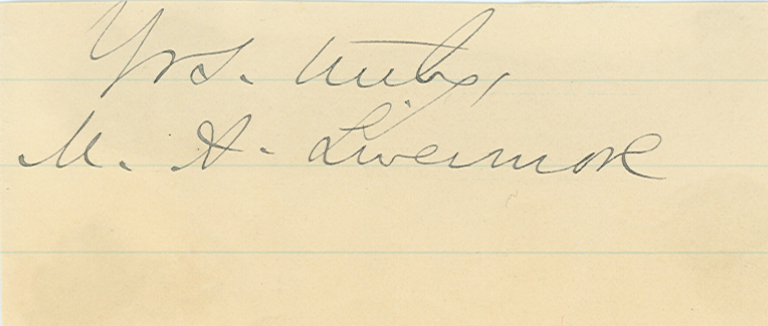 Yrs. truly,
M. A. Livermore